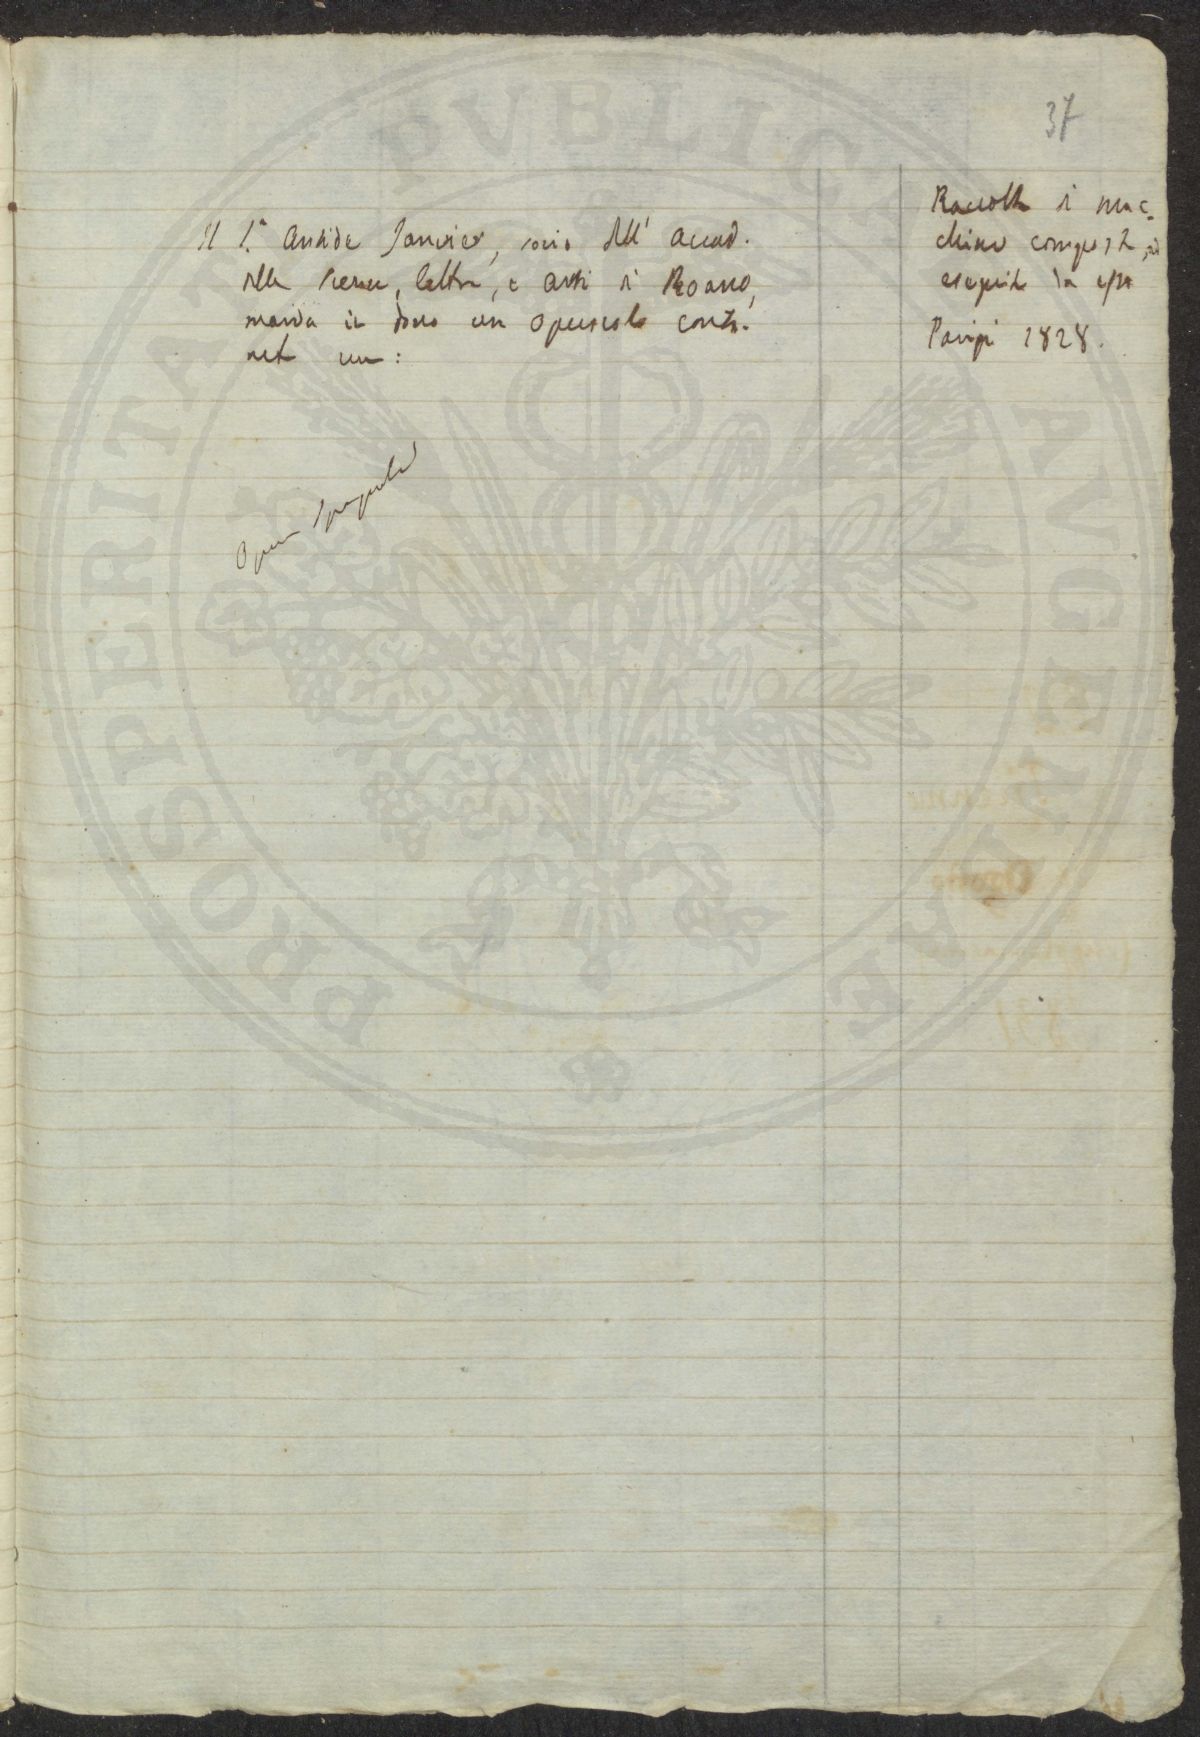 37
Il S.r Antide Janvier, socio dell' Accad.
delle Scienze, lettere, e arti di Roano,
manda in dono un opuscolo conte-
nente una:
Raccolta di mac-
chine composte, ed
eseguite da esso
Parigi 1828.
PROSPERITATI PVBLICAE AVGENDAE